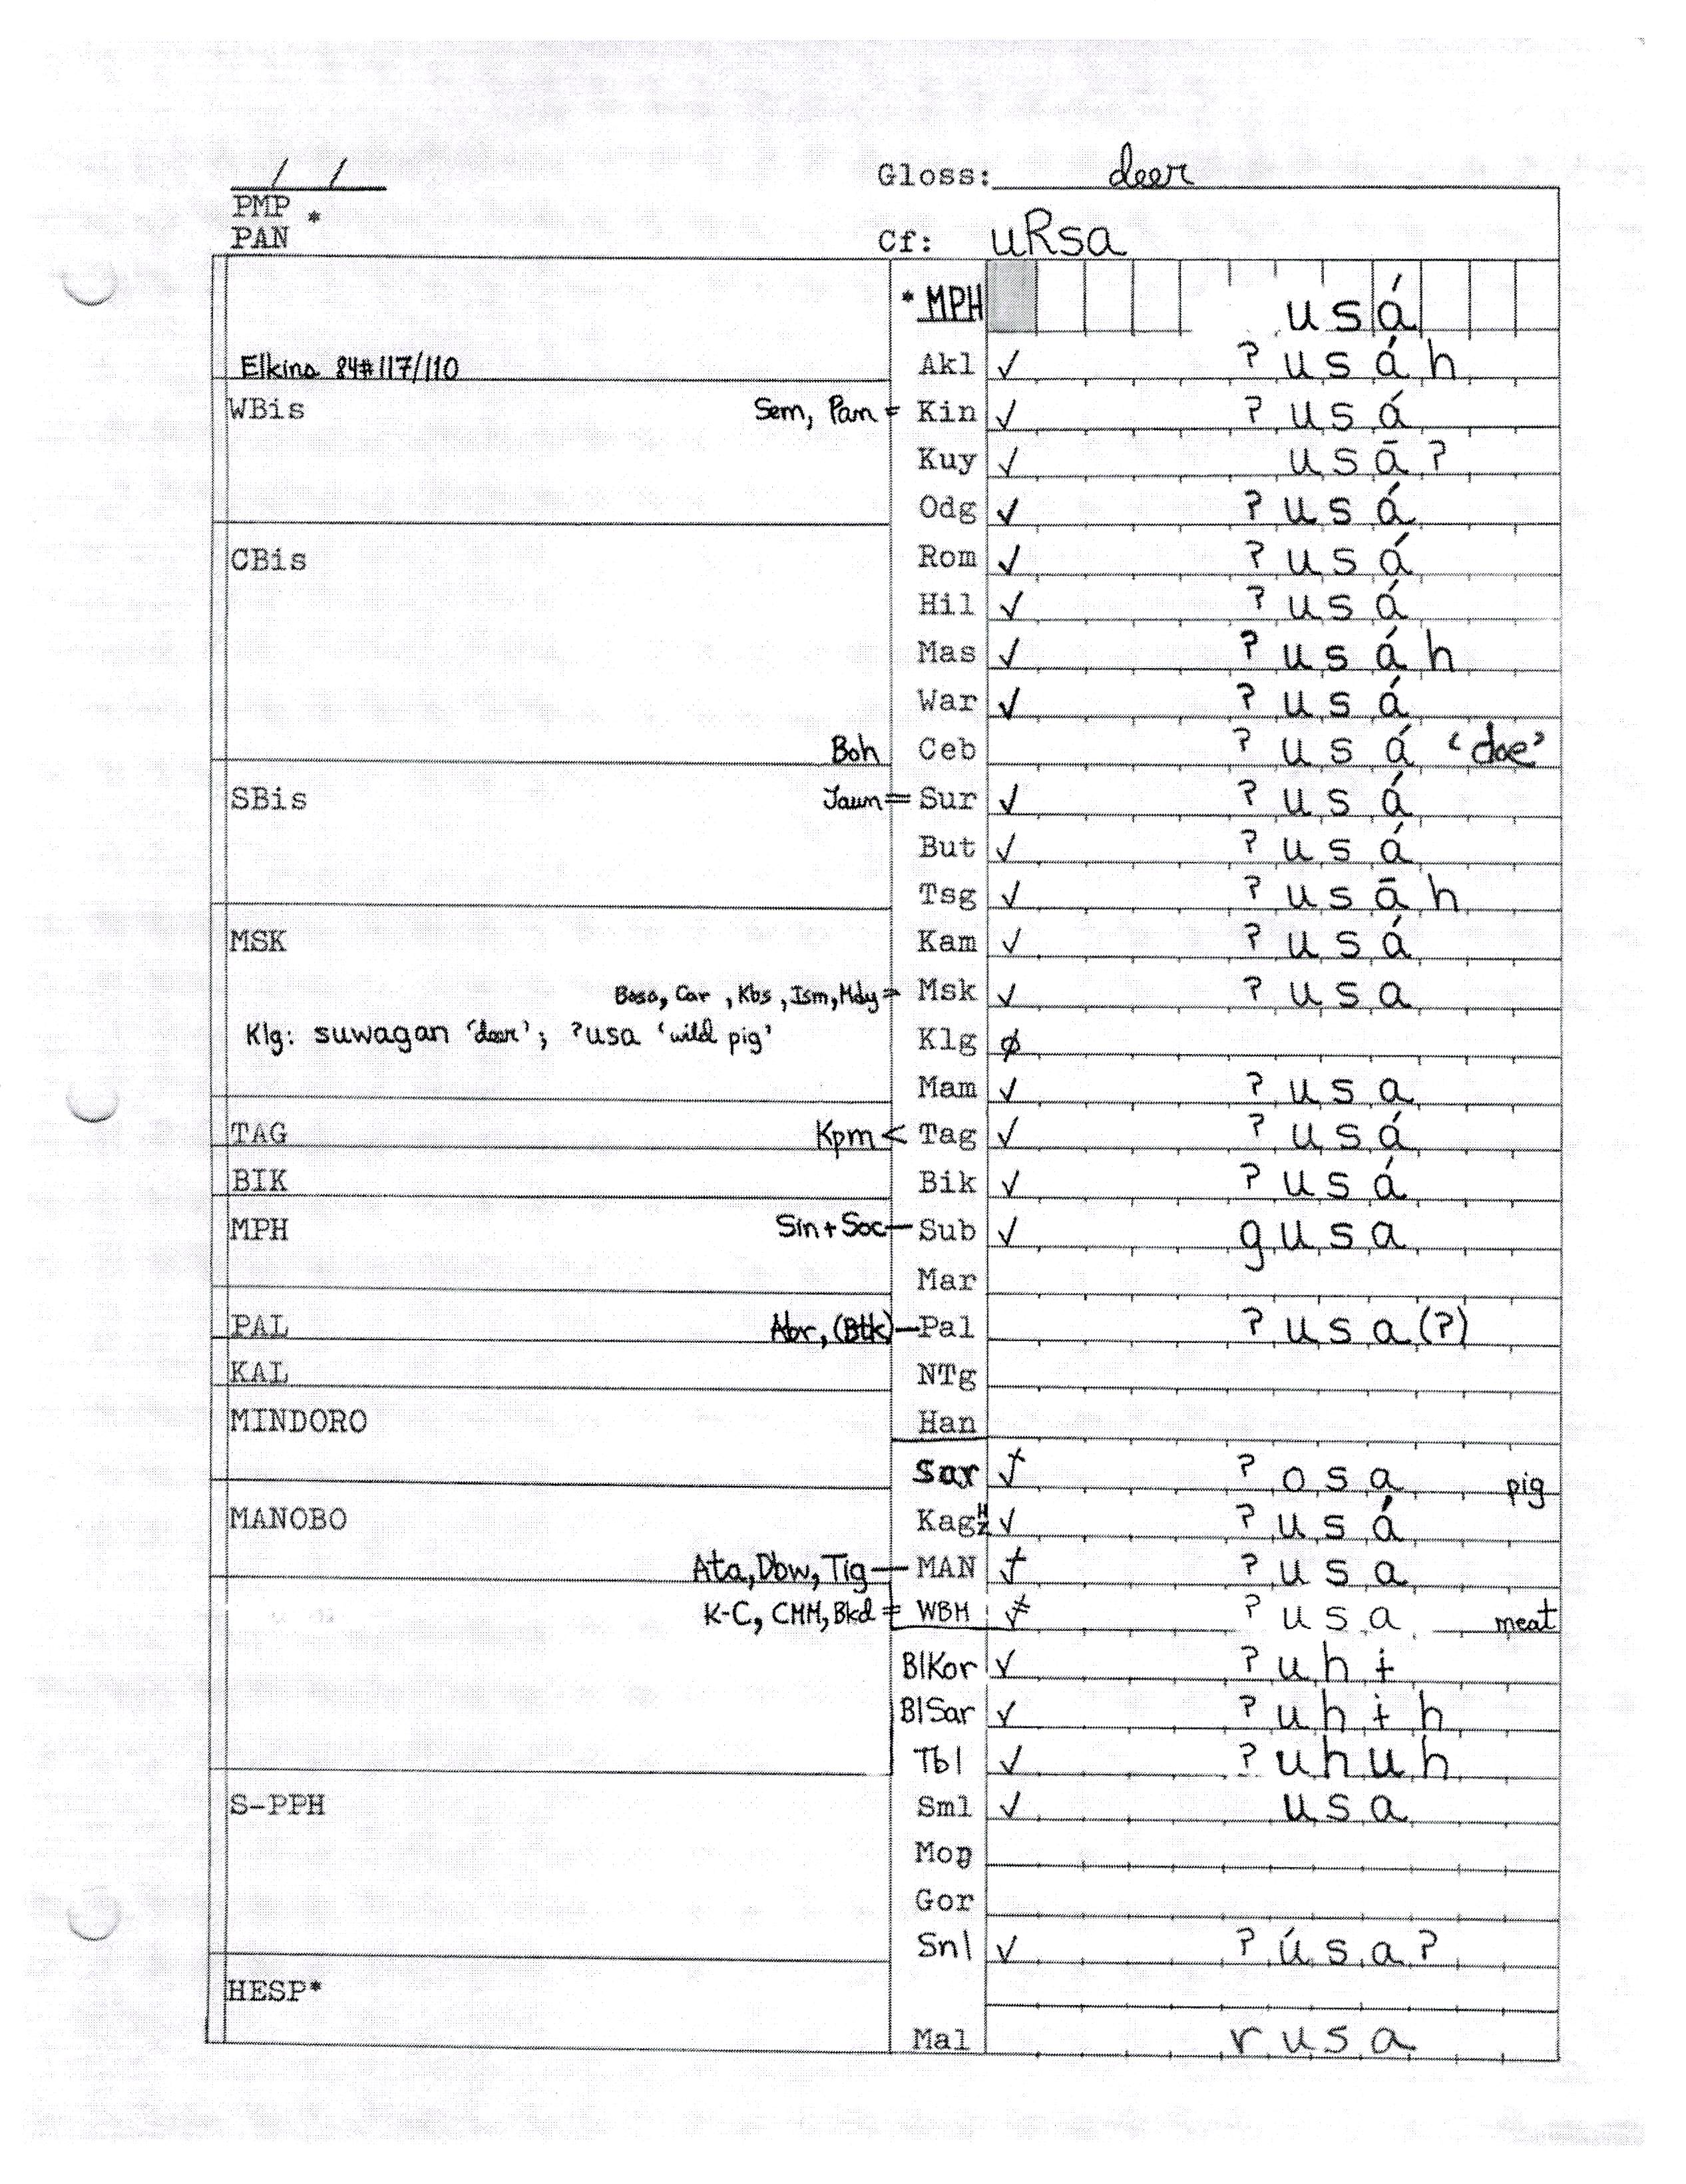 / /
Gloss: deer
PMP *
PAN
Cf: uRsa
* MPH usá
Elkins 84#117/110
Akl ✓ ? u s á h
WBis Sem, Pan = Kin ✓ ? u s á
Kuy ✓ u s ā ?
Odg ✓ ? u s á
CBis Rom ✓ ? u s á
Hil ✓ ? u s á
Mas ✓ ? u s á h
War ✓ ? u s á
Boh Ceb ? u s á ‘doe’
SBis Jaun = Sur ✓ ? u s á
But ✓ ? u s á
Tsg ✓ ? u s ā h
MSK Kam ✓ ? u s á
Baso, Car, Kbs, Ism, Mdy = Msk ✓ ? u s a
Klg: suwagan ‘deer’; ?usa ‘wild pig’ Klg ∅
Mam ✓ ? u s a
TAG Kpm < Tag ✓ ? u s á
BIK Bik ✓ ? u s á
MPH Sin + Soc — Sub ✓ g u s a
Mar
PAL Abr, (Btk) — Pal ? u s a (?)
KAL NTg
MINDORO Han
Sar ? o s a pig
MANOBO Kag ✓ ? u s á
Ata, Dbw, Tig — MAN ? u s a
K-C, CMM, Bkd = WBM ? u s a meat
BlKor ✓ ? u h ɨ
BlSar ✓ ? u h ɨ h
Tbl ✓ ? u h u h
S-PPH Sml ✓ u s a
Moŋ
Gor
Snl ✓ ? ú s a ?
HESP*
Mal r u s a